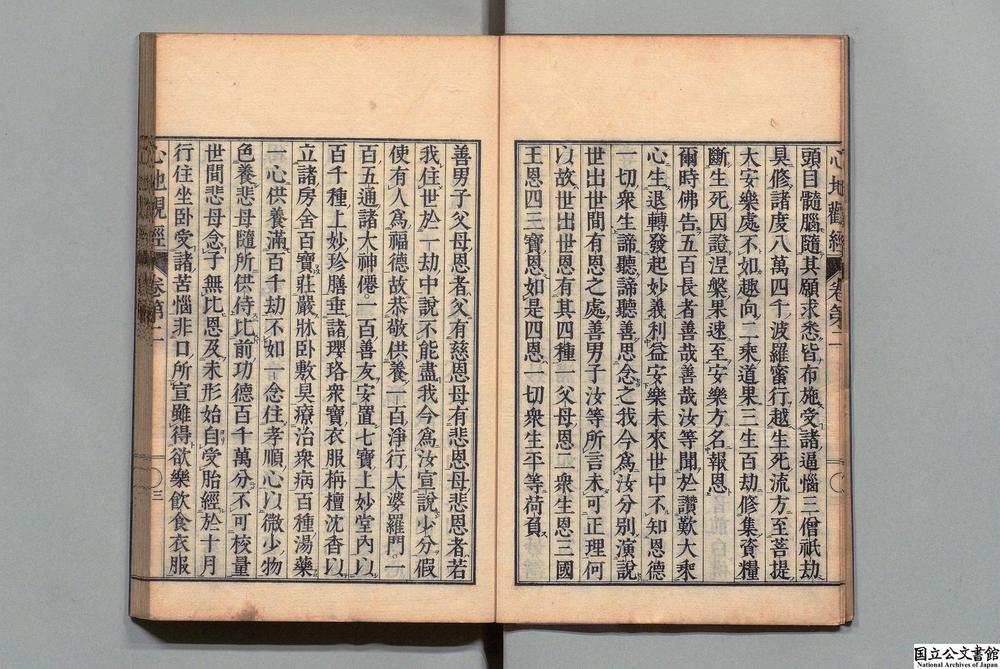 心地觀經 卷第二
頭目髓腦隨其願求悉皆布施受諸逼惱三僧祇劫
具修諸度八萬四千波羅蜜行越生死流方至菩提
大安樂處不如趣向二乘道果三生百劫修集資糧
斷生死因證涅槃果速至安樂方名報恩
爾時佛告五百長者善哉善哉汝等聞於讚歎大乘
心生退轉發起妙義利益安樂未來世中不知恩德
一切衆生諦聽諦聽善思念之我今爲汝分別演說
世出世間有恩之處善男子汝等所言未可正理何
以故世出世恩有其四種一父母恩二衆生恩三國
王恩四三寶恩如是四恩一切衆生平等荷負
善男子父母恩者父有慈恩母有悲恩母悲恩者若
我住世於一劫中說不能盡我今爲汝宣說少分假
使有人爲福德故恭敬供養一百淨行大婆羅門一
百五通諸大神僊一百善友安置七寶上妙堂內以
百千種上妙珍膳垂諸瓔珞衆寶衣服栴檀沈香以
立諸房舍百寶莊嚴牀臥敷具療治衆病百種湯藥
一心供養滿百千劫不如一念住孝順心以微少物
色養悲母隨所供侍比前功德百千萬分不可校量
世間悲母念子無比恩及未形始自受胎經於十月
行住坐臥受諸苦惱非口所宣雖得欲樂飲食衣服
心地觀經 卷第二
三
国立公文書館
National Archives of Japan